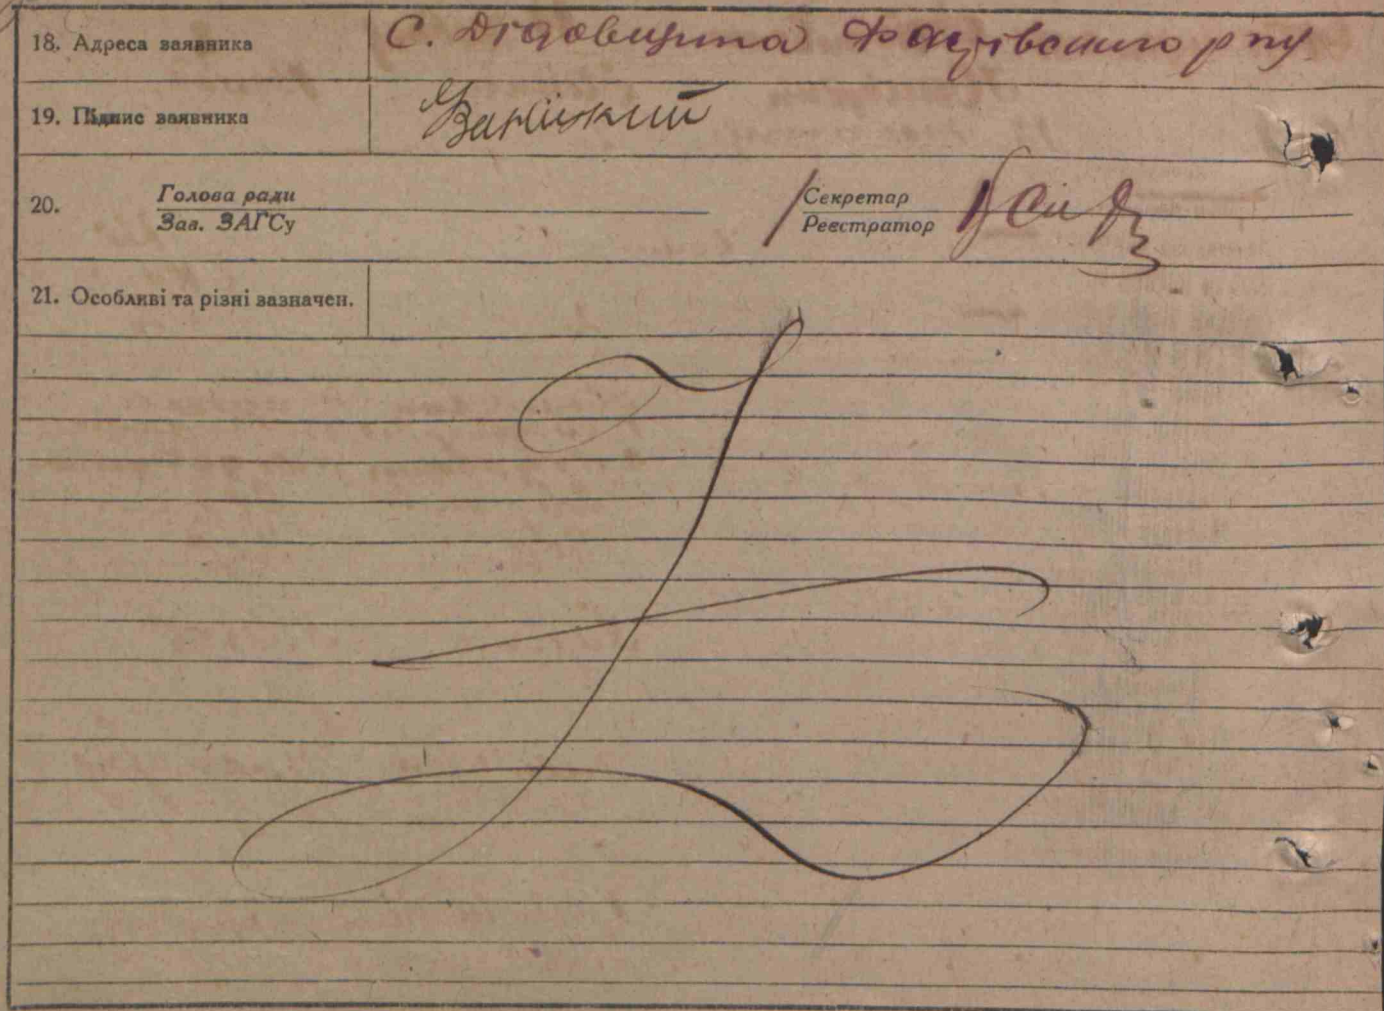 18. Адреса заявника С. Дідовщина Фастівського р-ну
19. Підпис заявника
20. Голова ради Секретар
Зав. ЗАГСу Реєстратор
21. Особливі та різні зазначен.